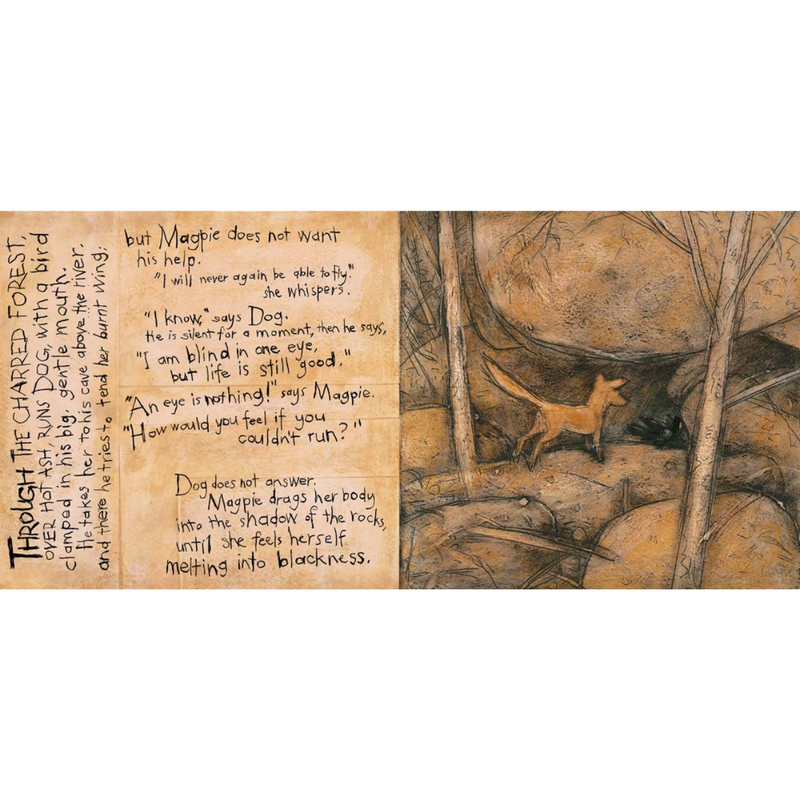 THROUGH THE CHARRED FOREST,
OVER HOT ASH, RUNS DOG, with a bird
clamped in his big, gentle mouth.
He takes her to his cave above the river,
and there he tries to tend her burnt wing:
but Magpie does not want
his help.
"I will never again be able to fly,"
she whispers.
"I know," says Dog.
He is silent for a moment, then he says,
"I am blind in one eye,
but life is still good."
"An eye is nothing!" says Magpie.
"How would you feel if you
couldn't run?"
Dog does not answer.
Magpie drags her body
into the shadow of the rocks,
until she feels herself
melting into blackness.